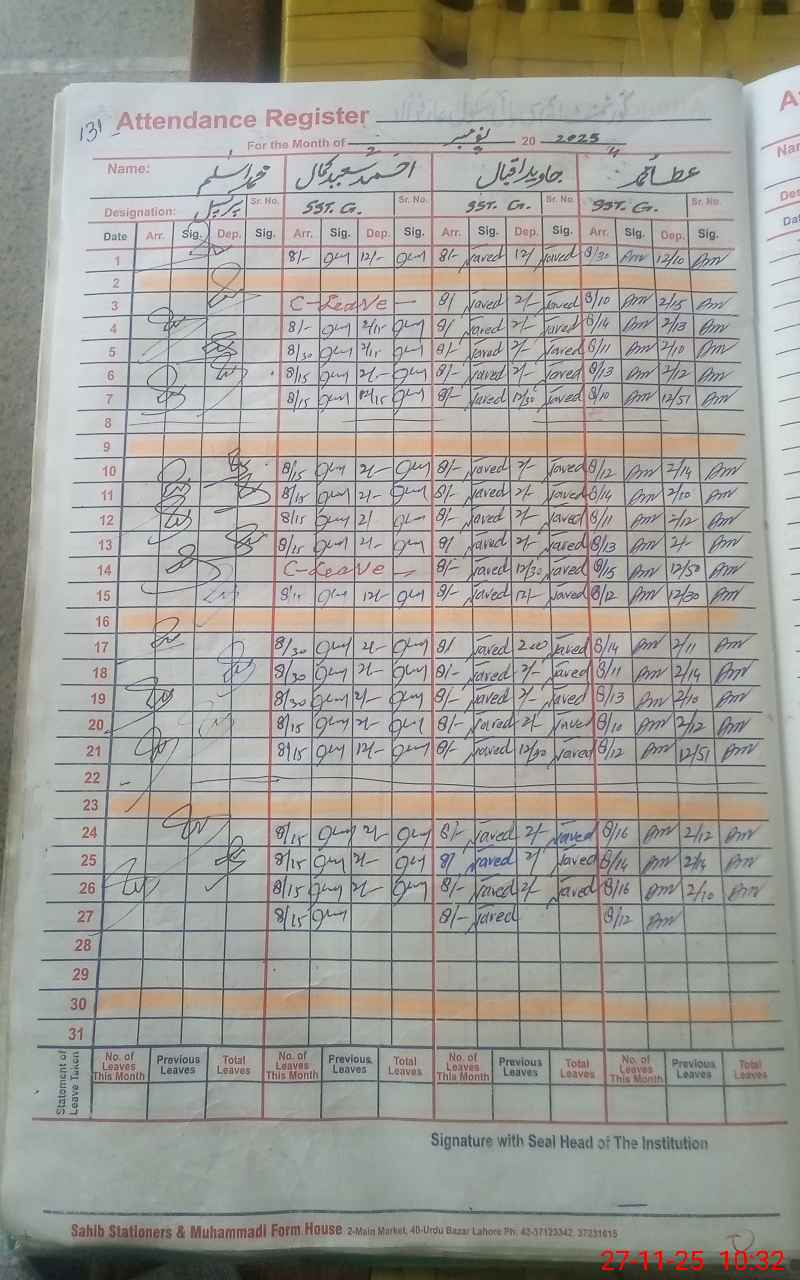 131 Attendance Register
For the Month of نومبر 20 2025
Name: محمد اسلم احمد سعید کمال جاوید اقبال عطا محمد
Designation: پرنسپل Sr. No. SST. G. Sr. No. SST. G. Sr. No. SST. G. Sr. No.
Date Arr. Sig. Dep. Sig. Arr. Sig. Dep. Sig. Arr. Sig. Dep. Sig. Arr. Sig. Dep. Sig.
1 8/- 12/- 8/- Javed 12/ Javed 8/30 12/10
2
3 C-Leave 8/ Javed 2/- Javed 8/10 2/15
4 8/- 2/15 8/ Javed 2/- Javed 8/14 2/13
5 8/30 2/15 8/- Javed 2/- Javed 8/11 2/10
6 8/15 2/- 8/- Javed 2/- Javed 8/13 2/12
7 8/15 12/15 8/- Javed 12/30 Javed 8/10 12/51
8
9
10 8/15 2/- 8/- Javed 2/- Javed 8/12 2/14
11 8/15 2/- 8/- Javed 2/- Javed 8/14 2/10
12 8/15 2/ 8/- Javed 2/- Javed 8/11 2/12
13 8/15 2/- 8/ Javed 2/- Javed 8/13 2/-
14 C-Leave 8/- Javed 12/30 Javed 8/15 12/50
15 12/- 8/- Javed 12/- Javed 8/12 12/30
16
17 8/30 2/- 8/ Javed 200 Javed 8/14 2/11
18 8/30 2/- 8/- Javed 2/- Javed 8/11 2/14
19 8/30 2/- 8/- Javed 2/- Javed 8/13 2/10
20 8/15 2/- 8/- Javed 2/- Javed 8/10 2/12
21 8/15 12/- 8/- Javed 12/30 Javed 8/12 12/51
22
23
24 8/15 2/- 8/- Javed 2/- Javed 8/16 2/12
25 8/15 2/- 8/ Javed 2/ Javed 8/14 2/14
26 8/15 2/- 8/- Javed 2/- Javed 8/16 2/10
27 8/15 8/- Javed 8/12
28
29
30
31
Statement of Leave Taken No. of Leaves This Month Previous Leaves Total Leaves No. of Leaves This Month Previous Leaves Total Leaves No. of Leaves This Month Previous Leaves Total Leaves No. of Leaves This Month Previous Leaves Total Leaves
Signature with Seal Head of The Institution
Sahib Stationers & Muhammadi Form House 2-Main Market, 40-Urdu Bazar Lahore Ph: 42-37123342, 37231615
27-11-25 10:32